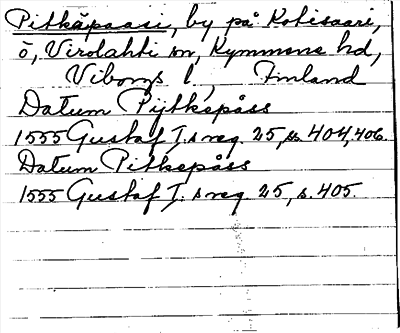 Pitkäpaasi, by på Kotisaari,
ö, Virolahti sn, Kymmene hd,
Viborgs l., Finland
Datum Pijtkepåss
1555 Gustaf I:s reg. 25, ss. 404, 406.
Datum Pitkepåss
1555 Gustaf I:s reg. 25, s. 405.